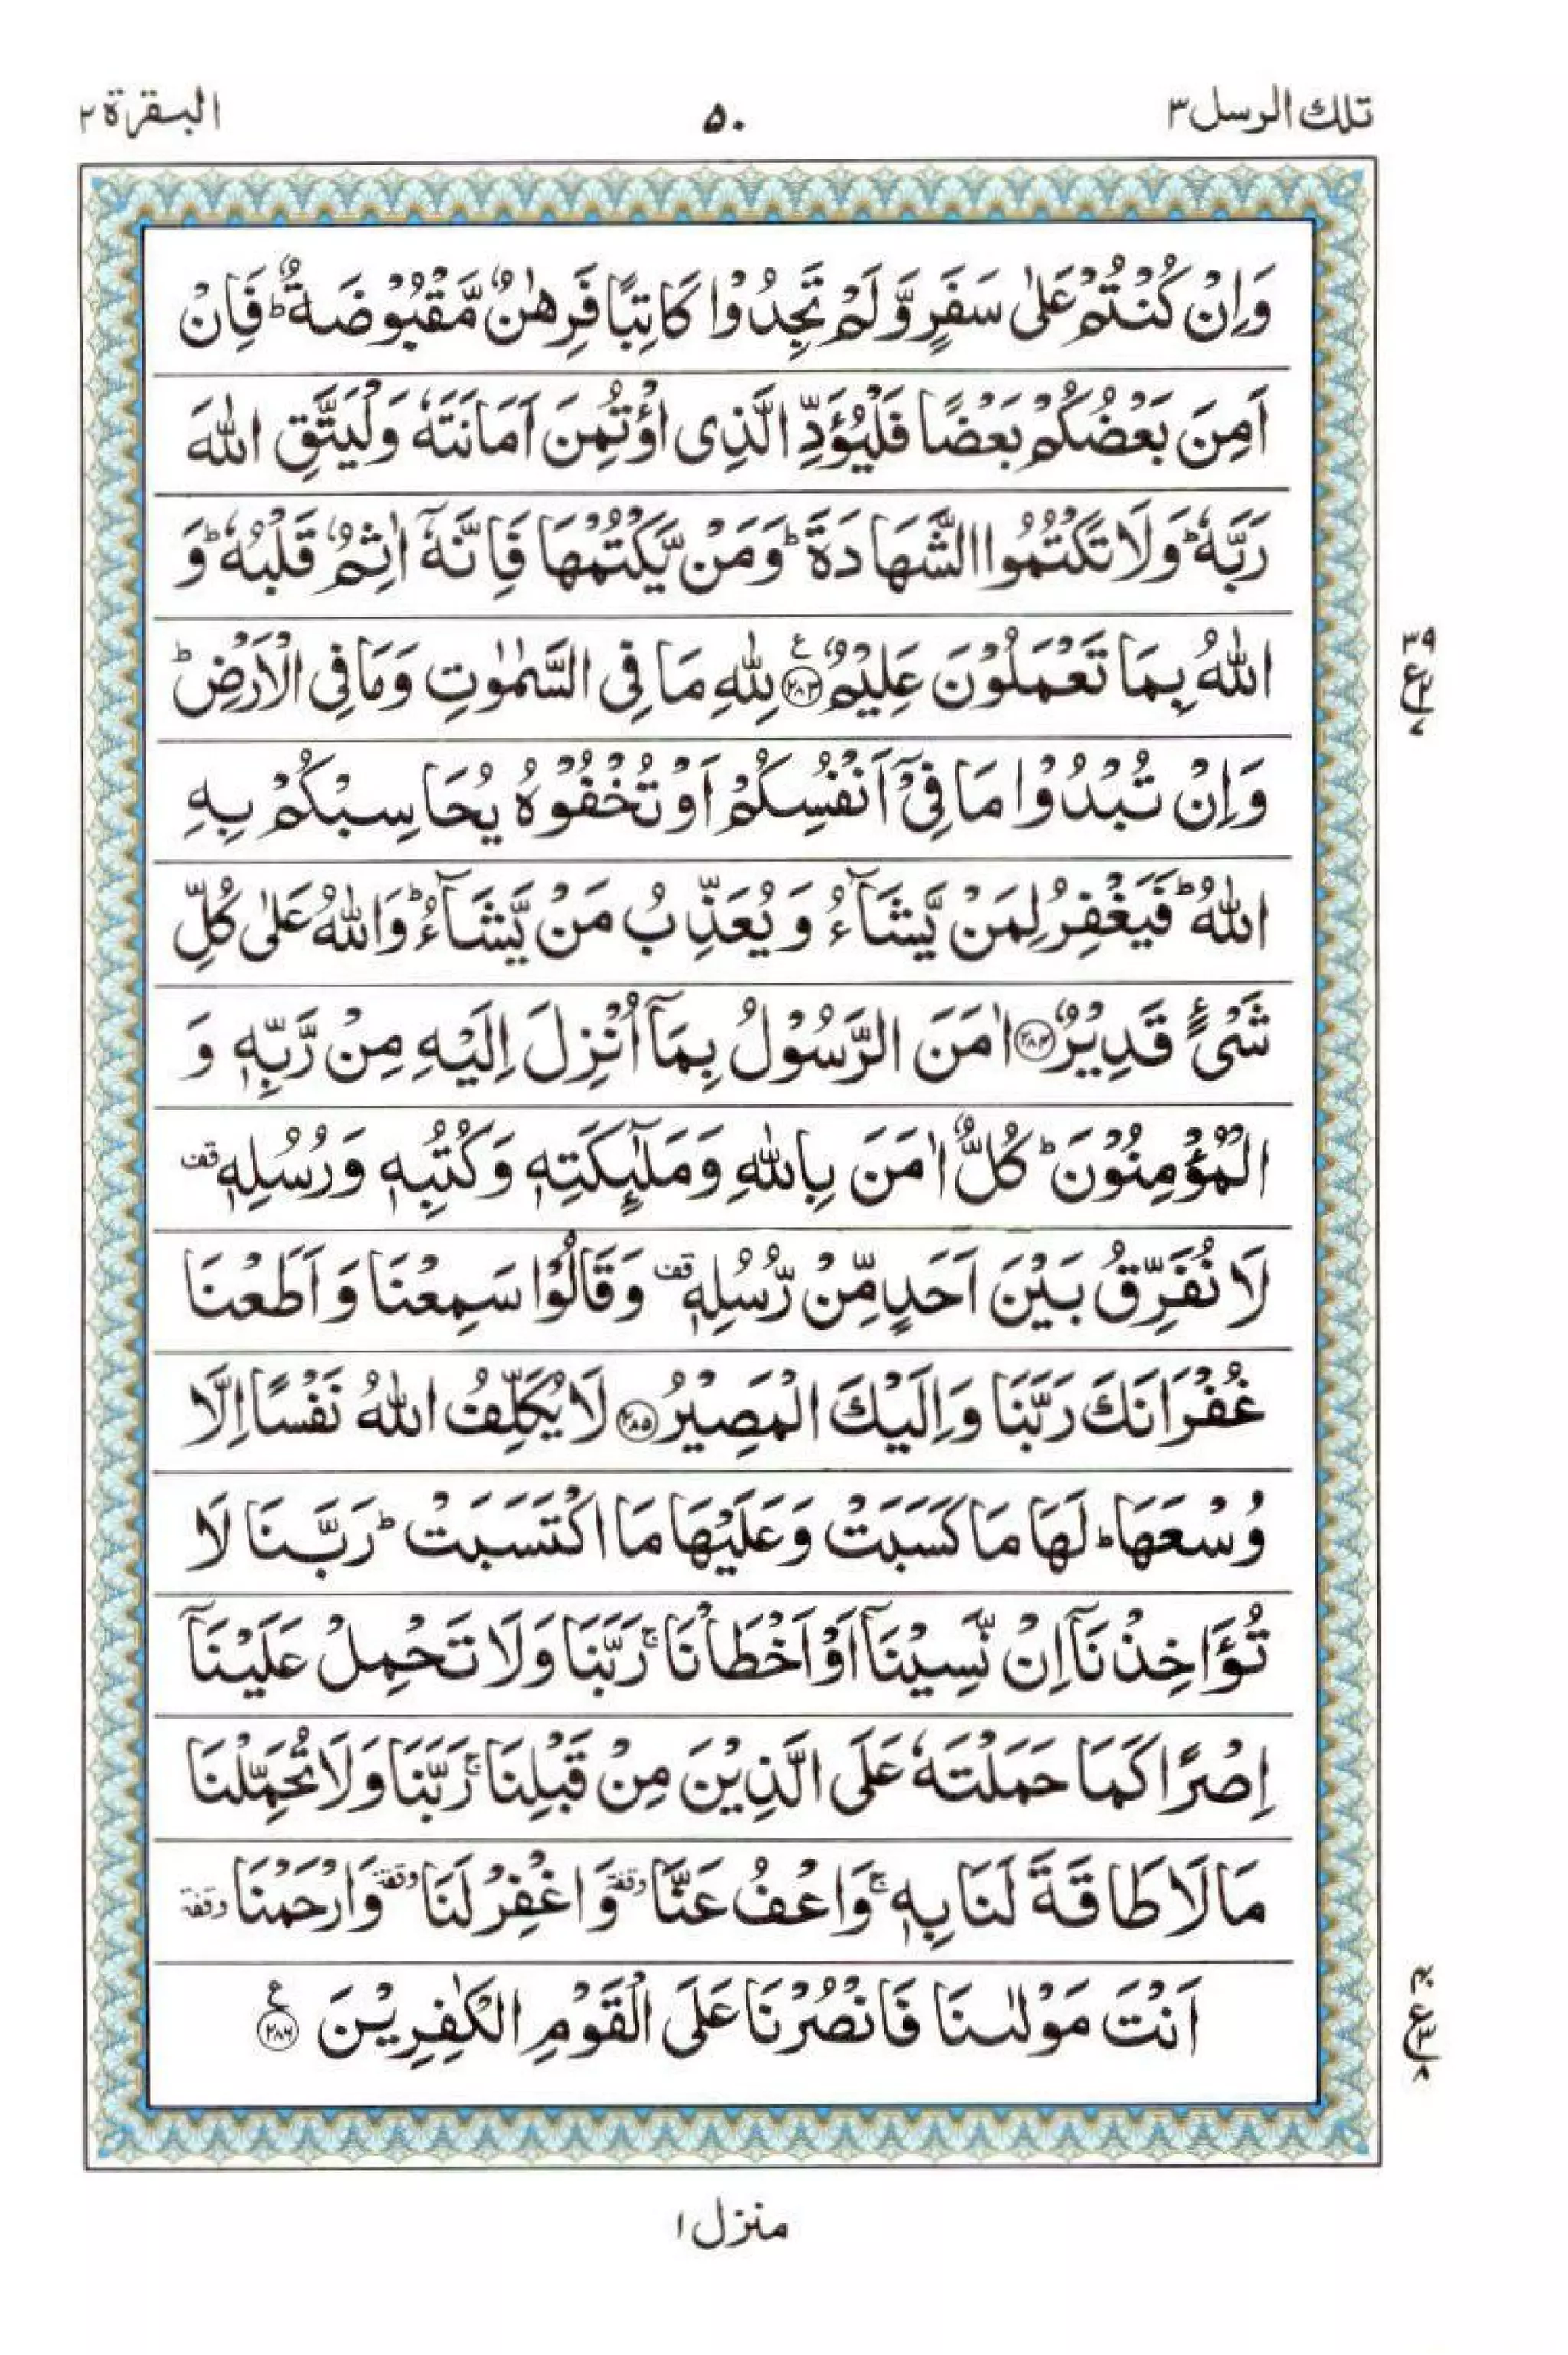 تلك الرسل ٣
٥٠
البقرة ٢
وَاِنْ كُنْتُمْ عَلٰى سَفَرٍ وَّلَمْ تَجِدُوْا كَاتِبًا فَرِهٰنٌ مَّقْبُوْضَةٌ ؕ فَاِنْ
اَمِنَ بَعْضُكُمْ بَعْضًا فَلْيُؤَدِّ الَّذِى اؤْتُمِنَ اَمَانَتَهٗ وَلْيَتَّقِ اللّٰهَ
رَبَّهٗ ؕ وَلَا تَكْتُمُوا الشَّهَادَةَ ؕ وَمَنْ يَّكْتُمْهَا فَاِنَّهٗۤ اٰثِمٌ قَلْبُهٗ ؕ وَ
اللّٰهُ بِمَا تَعْمَلُوْنَ عَلِيْمٌ ﴿٢٨٣﴾ ع لِلّٰهِ مَا فِى السَّمٰوٰتِ وَمَا فِى الْاَرْضِ ؕ
٣٩
ع
٧
وَاِنْ تُبْدُوْا مَا فِىْۤ اَنْفُسِكُمْ اَوْ تُخْفُوْهُ يُحَاسِبْكُمْ بِهِ
اللّٰهُ ؕ فَيَغْفِرُ لِمَنْ يَّشَآءُ وَيُعَذِّبُ مَنْ يَّشَآءُ ؕ وَاللّٰهُ عَلٰى كُلِّ
شَىْءٍ قَدِيْرٌ ﴿٢٨٤﴾ اٰمَنَ الرَّسُوْلُ بِمَاۤ اُنْزِلَ اِلَيْهِ مِنْ رَّبِّهٖ وَ
الْمُؤْمِنُوْنَ ؕ كُلٌّ اٰمَنَ بِاللّٰهِ وَمَلٰٓئِكَتِهٖ وَكُتُبِهٖ وَرُسُلِهٖ قف
لَا نُفَرِّقُ بَيْنَ اَحَدٍ مِّنْ رُّسُلِهٖ قف وَقَالُوْا سَمِعْنَا وَاَطَعْنَا
غُفْرَانَكَ رَبَّنَا وَاِلَيْكَ الْمَصِيْرُ ﴿٢٨٥﴾ لَا يُكَلِّفُ اللّٰهُ نَفْسًا اِلَّا
وُسْعَهَا ؕ لَهَا مَا كَسَبَتْ وَعَلَيْهَا مَا اكْتَسَبَتْ ؕ رَبَّنَا لَا
تُؤَاخِذْنَاۤ اِنْ نَّسِيْنَاۤ اَوْ اَخْطَاْنَا ۚ رَبَّنَا وَلَا تَحْمِلْ عَلَيْنَاۤ
اِصْرًا كَمَا حَمَلْتَهٗ عَلَى الَّذِيْنَ مِنْ قَبْلِنَا ۚ رَبَّنَا وَلَا تُحَمِّلْنَا
مَا لَا طَاقَةَ لَنَا بِهٖ ۚ وَاعْفُ عَنَّا وقفة وَاغْفِرْ لَنَا وقفة وَارْحَمْنَا وقفة
اَنْتَ مَوْلٰىنَا فَانْصُرْنَا عَلَى الْقَوْمِ الْكٰفِرِيْنَ ﴿٢٨٦﴾ ع
ع
٨
منزل ١